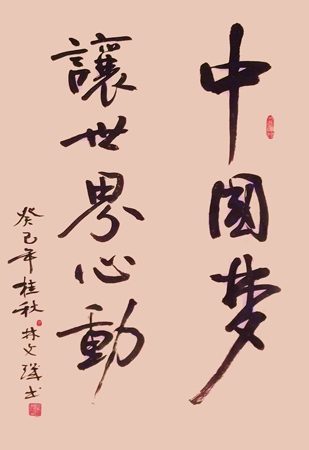 中國梦
讓世界心動
癸巳年桂秋 林文祥书